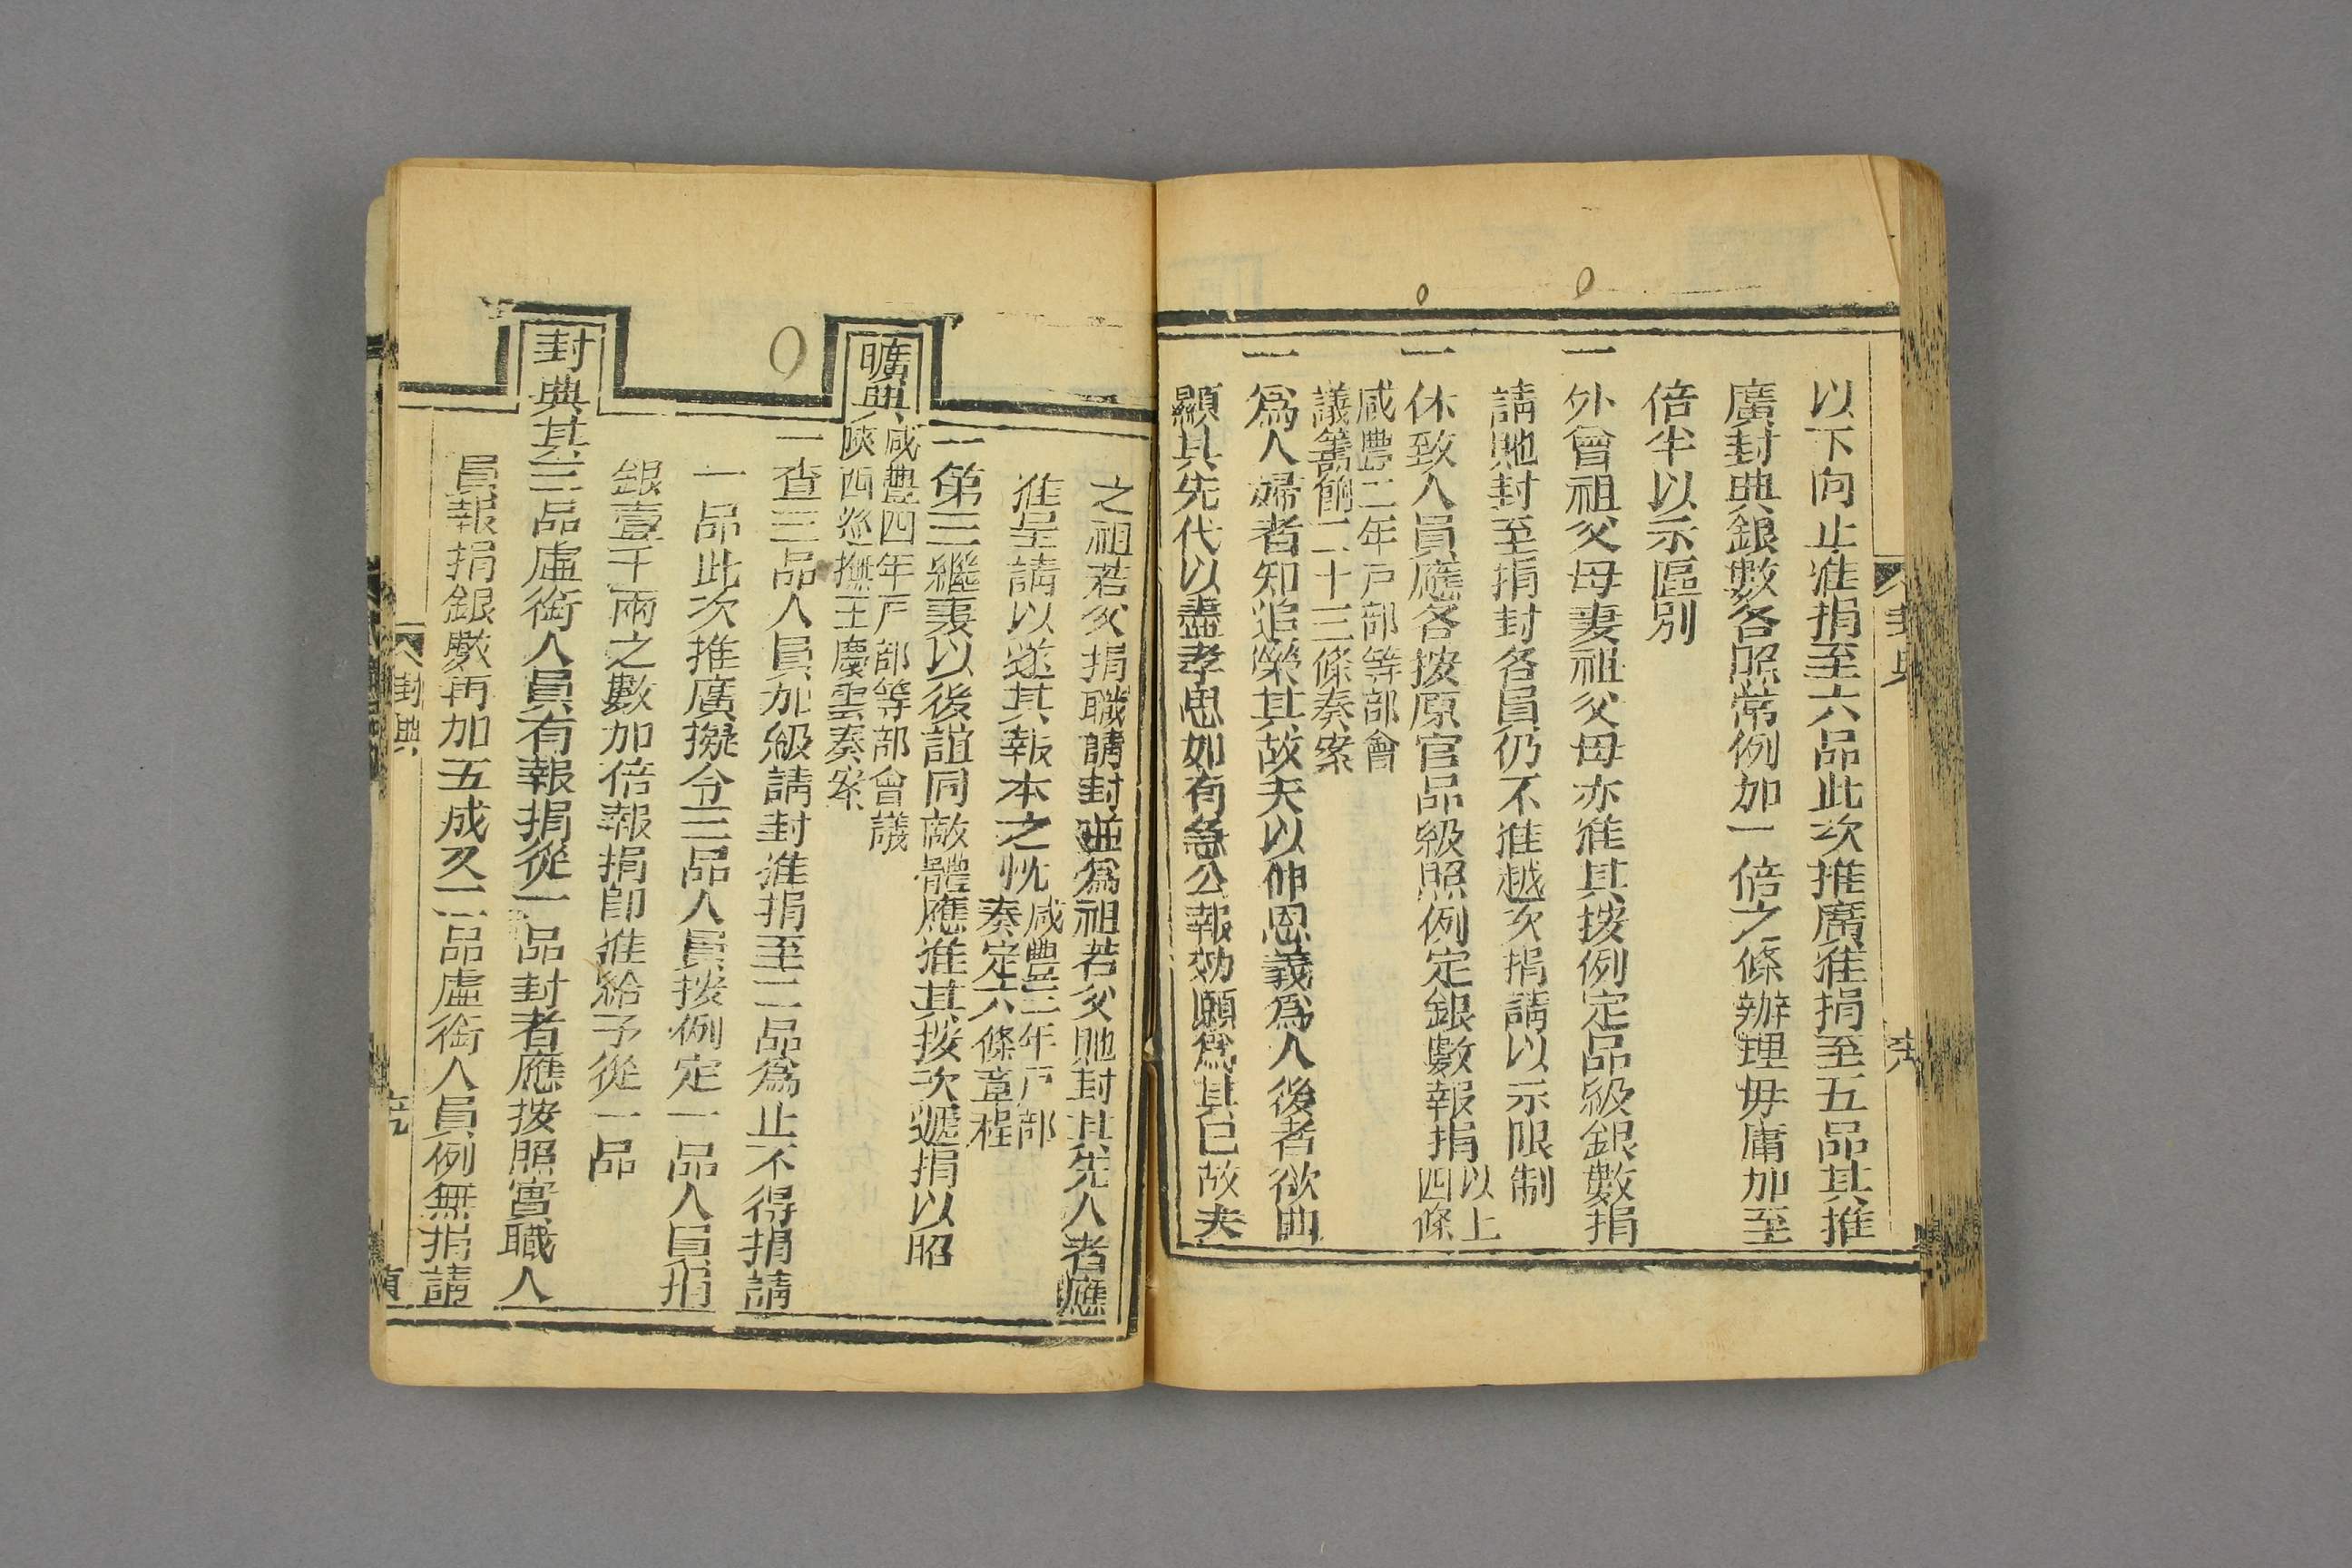 以下向止准捐至六品此次推廣准捐至五品其推
廣封典銀數各照常例加一倍之條辦理毋庸加至
倍半以示區別
一外曾祖父母妻祖父母亦准其按例定品級銀數捐
請貤封至捐封各員仍不准越次捐請以示限制
一休致人員應各按原官品級照例定銀數報捐以上四條
咸豐二年戸部等部會
議籌餉二十三條奏案
一為人婦者知追榮其故夫以伸恩義為人後者欲曲
顯其先代以盡孝思如有急公報効願為其已故夫
封典
之祖若父捐職請封並為祖若父貤封其先人者應
准呈請以遂其報本之忱咸豐三年戸部奏定六條章程
一第三繼妻以後誼同敵體應准其按次遞捐以昭
曠典咸豐四年戸部等部會議陝西巡撫王慶雲奏案
一查三品人員加級請封准捐至二品為止不得捐請
一品此次推廣擬令三品人員按例定一品人員捐
銀壹千兩之數加倍報捐卽准給予從一品
封典其三品虛銜人員有報捐從一品封者應按照實職人
員報捐銀數再加五成又二品虛銜人員例無捐請
封典